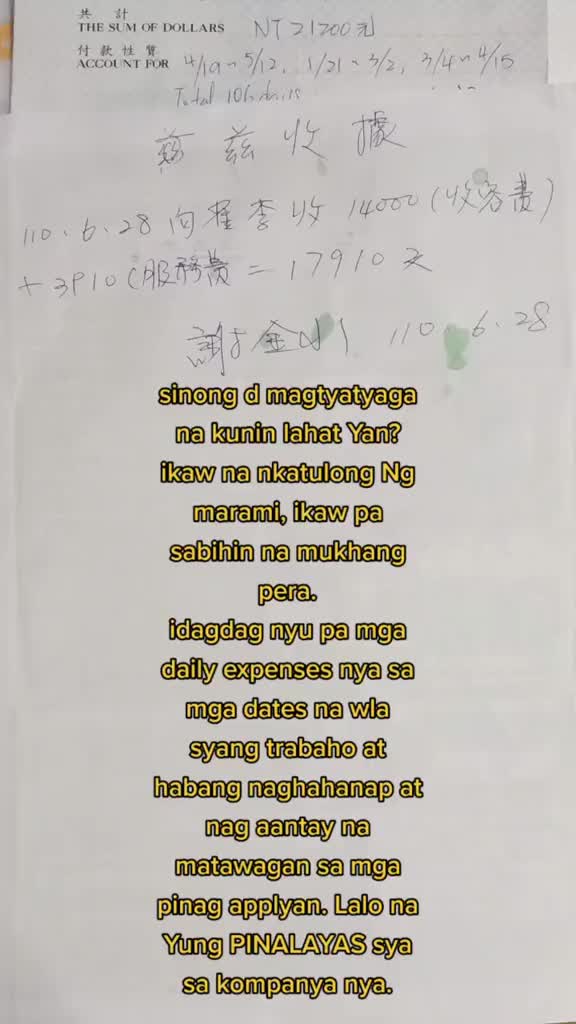 共 計
THE SUM OF DOLLARS NT 21200元
付款性質
ACCOUNT FOR 4/19~5/12, 1/21~3/2, 3/4~4/15
Total 106
茲收據
110.6.28 向 李收 14000 (收容費)
+ 3910 (服務費 = 17910 元
謝金 110.6.28
sinong d magtyatyaga
na kunin lahat Yan?
ikaw na nkatulong Ng
marami, ikaw pa
sabihin na mukhang
pera.
idagdag nyu pa mga
daily expenses nya sa
mga dates na wla
syang trabaho at
habang naghahanap at
nag aantay na
matawagan sa mga
pinag applyan. Lalo na
Yung PINALAYAS sya
sa kompanya nya.